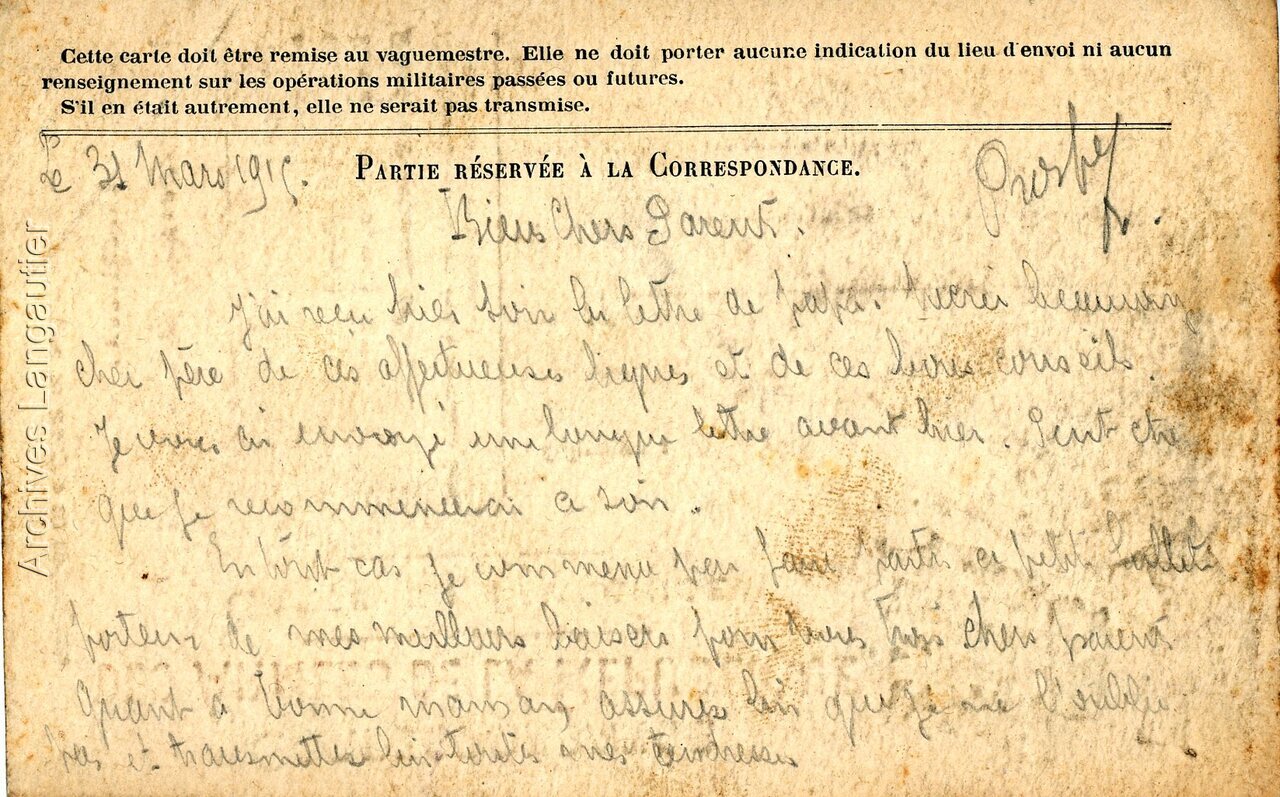 Cette carte doit être remise au vaguemestre. Elle ne doit porter aucune indication du lieu d'envoi ni aucun
renseignement sur les opérations militaires passées ou futures.
S'il en était autrement, elle ne serait pas transmise.
Le 31 Mars 1915.
PARTIE RÉSERVÉE À LA CORRESPONDANCE.
Bien Chers Parents.
J'ai reçu hier soir la lettre de papa. Merci beaucoup
cher père de ces affectueuses lignes et de ces bons conseils.
Je vous ai envoyé une longue lettre avant hier. Peut etre
que je recommencerai ce soir.
En tout cas je commence par faire partir ce petit
porteur de mes meilleurs baisers pour vous trois chers parents
Quant à bonne maman assurez lui que je ne l'oublie
pas et transmettez lui toutes mes tendresses
Archives Langautier